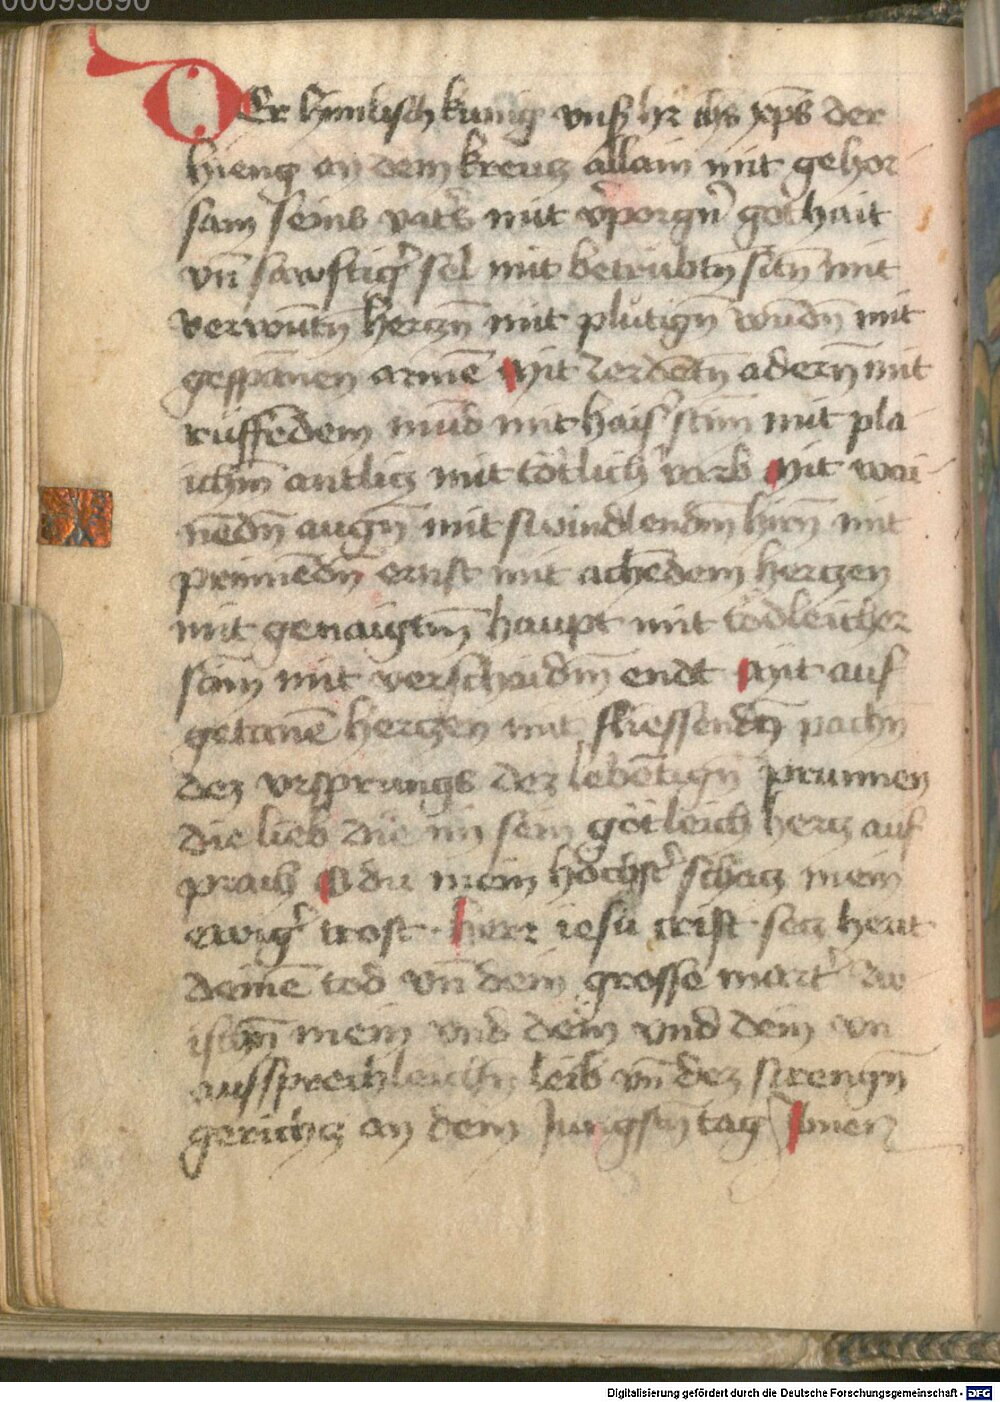 00095890
DEr himlisch kunig vnsß hr ihs xp̄s der
hieng an dem kreutz allain mit gehor
sam seins vaters mit v̓porgn̄ gothait
vn̄ sawftig̓ sel mit betrubtn̄ sitn̄ mit
verwūtn̄ hertzn̄ mit plutign̄ wūdn̄ mit
gespānen armē Mit zerdētn̄ adern̄ mit
rüffēdem mūd mit hais̓ stim mit pla
ichm̄ antlitz mit tötlich̓ varb Mit wai
nēdn̄ augn̄ mit swindlendm̄ hirn̄ mit
prinnēdn̄ ernst mit achēdem hertzen
mit genaigtm̄ haupt mit tödleicher
mit verschaidm̄ endt Mit auf
getanē hertzen mit fliessendn̄ pachn̄
dez vrsprungs dez lebētign̄ prunnen
die lieb die im sein götleich hertz auf
prach O du mein höchst̓ schatz mein
ewig̓ trost · herr iesu crist · setz heut
deinē tod vn̄ dein grosse mart̓
mein vnd dein vnd dein vn
aussprechleichn̄ leib vn̄ dez strengn̄
gerichtz an dem Jungstn̄ tag Amen
Digitalisierung gefördert durch die Deutsche Forschungsgemeinschaft - DFG